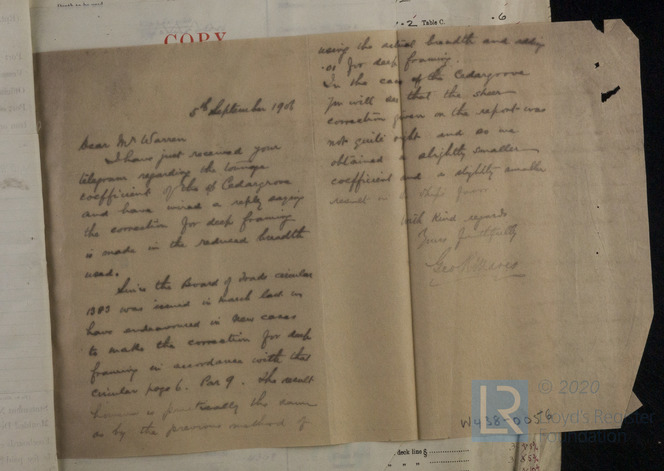 COPY
2 Table C. 6
8th September 1908
Dear Mr Warren
I have just received your
telegram regarding the tonnage
coefficient of the ss Cedargrove
and have wired a reply saying
the correction for deep framing
is made in the reduced breadth
used.
Since the Board of Trade circular
1383 was issued in March last we
have endeavoured in new cases
to make the correction for deep
framing in accordance with that
circular page 6. Par 9. The result
is practically the same
as by the previous method of
using the actual breadth and
.6 for deep framing.
In the case of the Cedargrove
you will see that the sheer
correction given on the report was
not quite right and as we
obtained a slightly smaller
coefficient and a slightly smaller
result in
With kind regards
Yours faithfully
W438-0056
LR © 2020
Lloyd's Register
Foundation
deck line §